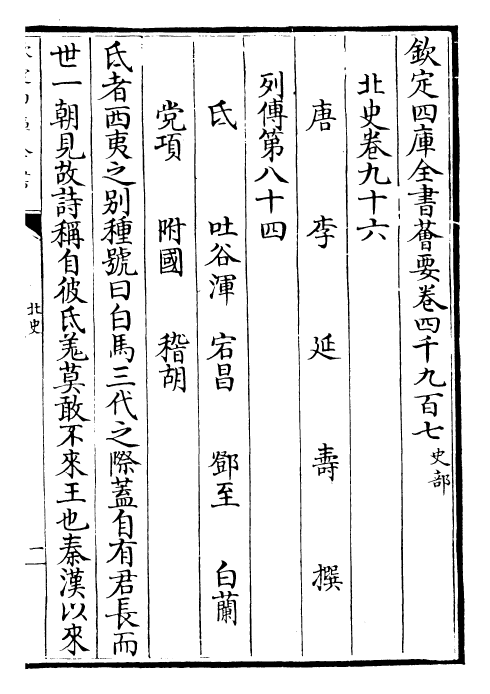 欽定四庫全書薈要卷四千九百七史部
北史卷九十六
唐李延壽撰
列傳第八十四
氐 吐谷渾 宕昌 鄧至 白蘭
党項 附國 稽胡
氐者西夷之别種號曰白馬三代之際蓋自有君長而
世一朝見故詩稱自彼氐羗莫敢不來王也秦漢以來
北史